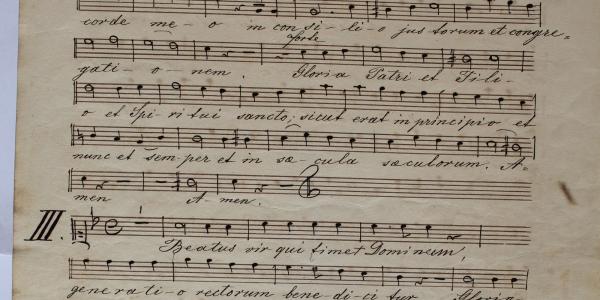 corde me-o in con si-li-o jus torum et congre=
forte
gati-o-nem. Gloria Patri et Fili-
o et Spi-ri tui sancto, sicut erat in principio et
nunc et sem-per et in sæ-cula sæculorum. A-
men A-men.
III.
Beatus vir qui timet Dominum,
gene rati-o rectorum bene-di-ci tur. Gloria